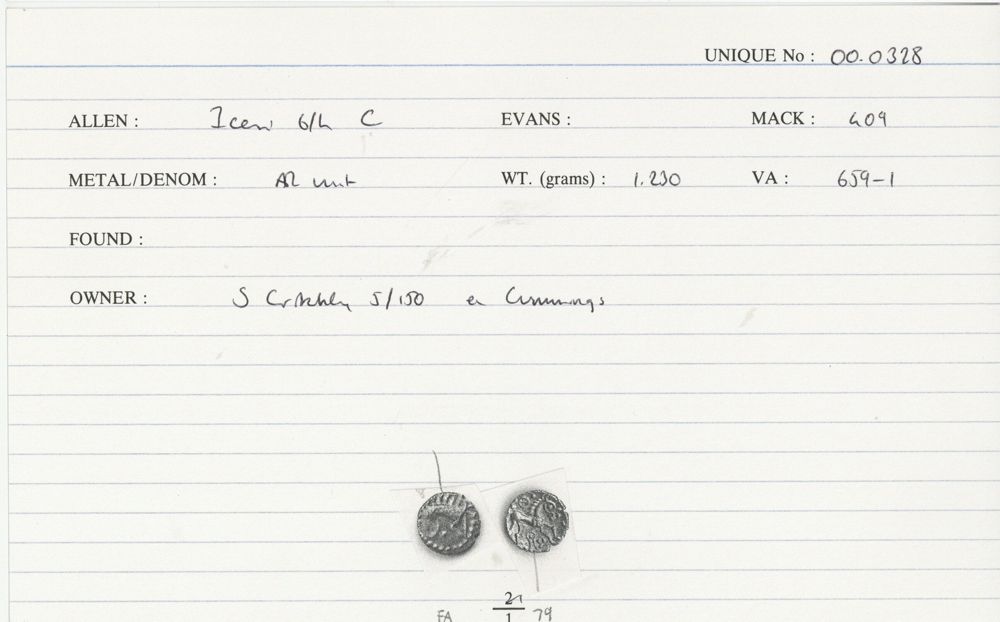 UNIQUE No : 00.0328
ALLEN : Iceni b/h C EVANS : MACK : 409
METAL/DENOM : AR unit WT. (grams) : 1.230 VA : 659-1
FOUND :
OWNER : S Critchley 5/150 ex Cummings
FA 21/1 79